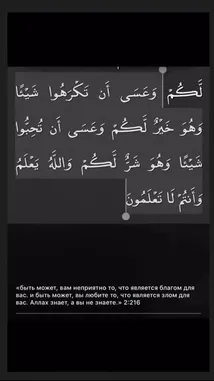 لَّكُمْ وَعَسَى أَن تَكْرَهُوا شَيْئًا
وَهُوَ خَيْرٌ لَّكُمْ وَعَسَى أَن تُحِبُّوا
شَيْئًا وَهُوَ شَرٌّ لَّكُمْ وَاللَّهُ يَعْلَمُ
وَأَنتُمْ لَا تَعْلَمُونَ
«быть может, вам неприятно то, что является благом для
вас. и быть может, вы любите то, что является злом для
вас. Аллах знает, а вы не знаете.» 2:216